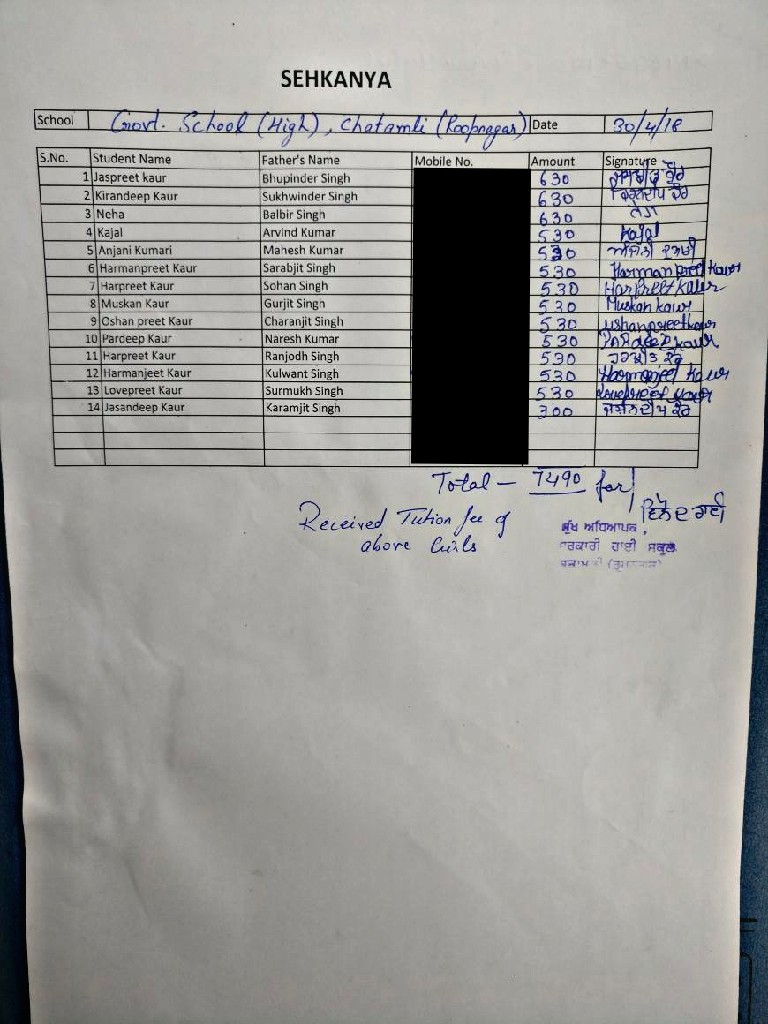 SEHKANYA
School Govt. School (High), Chatamli (Roopnagar) Date 30/4/18
S.No. Student Name Father's Name Mobile No. Amount Signature
1 Jaspreet kaur Bhupinder Singh 630 ਕੌਰ
2 Kirandeep Kaur Sukhwinder Singh 630 ਕਿਰਨਦੀਪ ਕੌਰ
3 Neha Balbir Singh 630 ਨੇਹਾ
4 Kajal Arvind Kumar 530 Kajal
5 Anjani Kumari Mahesh Kumar 530
6 Harmanpreet Kaur Sarabjit Singh 530 Harmanpreet Kaur
7 Harpreet Kaur Sohan Singh 530 Harpreet kaur
8 Muskan Kaur Gurjit Singh 530 Muskan kaur
9 Oshan preet Kaur Charanjit Singh 530 ushanpreet kaur
10 Pardeep Kaur Naresh Kumar 530 Pardeep kaur
11 Harpreet Kaur Ranjodh Singh 530 ਹਰਪ੍ਰੀਤ ਕੌਰ
12 Harmanjeet Kaur Kulwant Singh 530 Harmanjeet Kaur
13 Lovepreet Kaur Surmukh Singh 530 Lovepreet kaur
14 Jasandeep Kaur Karamjit Singh 300 ਜਸ਼ਨਦੀਪ ਕੌਰ
Total - 7490 for
Received Tution fee of
above Girls
ਮੁੱਖ ਅਧਿਆਪਕ,
ਸਰਕਾਰੀ ਹਾਈ ਸਕੂਲ